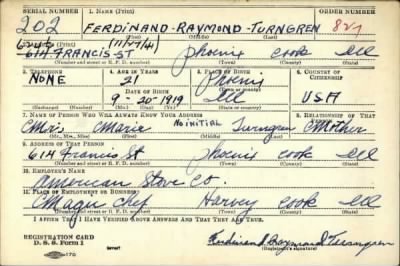 SERIAL NUMBER 1. NAME (Print) ORDER NUMBER
202 FERDINAND-RAYMOND-TURNGREN 827
(11/27/41)
614-FRANCIS ST Phoenix Cook Ill
(Number and street or R. F. D. number) (Town) (County) (State)
3. TELEPHONE 4. AGE IN YEARS 5. PLACE OF BIRTH 6. COUNTRY OF CITIZENSHIP
NONE 21 Phoenix
DATE OF BIRTH (Town or county)
9-20-1919 Ill USA
(Exchange) (Number) (Mo.) (Day) (Yr.) (State or country)
7. NAME OF PERSON WHO WILL ALWAYS KNOW YOUR ADDRESS 8. RELATIONSHIP OF THAT PERSON
Mrs Marie No initial Turngren Mother
(Mr., Mrs., Miss) (First) (Middle) (Last)
9. ADDRESS OF THAT PERSON
614 Francis St Phoenix Cook Ill
(Number and street or R. F. D. number) (Town) (County) (State)
10. EMPLOYER'S NAME
American Stove Co.
11. PLACE OF EMPLOYMENT OR BUSINESS
Magic Chef Harvey Cook Ill
(Number and street or R. F. D. number) (Town) (County) (State)
I AFFIRM THAT I HAVE VERIFIED ABOVE ANSWERS AND THAT THEY ARE TRUE.
REGISTRATION CARD
D. S. S. Form 1 Ferdinand Raymond Turngren
(Registrant's signature)